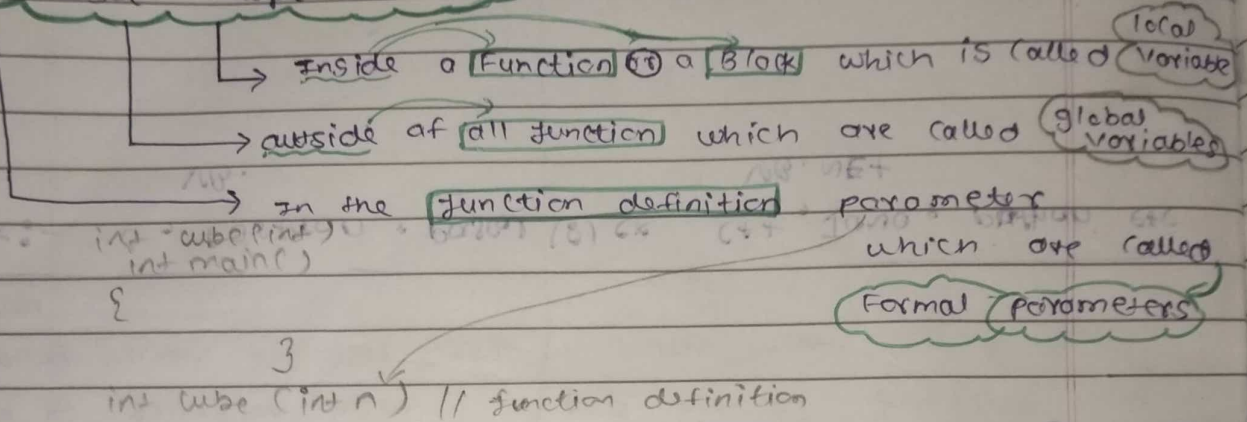 Inside a Function or a Block which is called local variable
outside of all function which are called global variables
In the function definition parameter
which are called
Formal parameters
int cube(int)
int main()
{
}
int cube (int n) // function definition